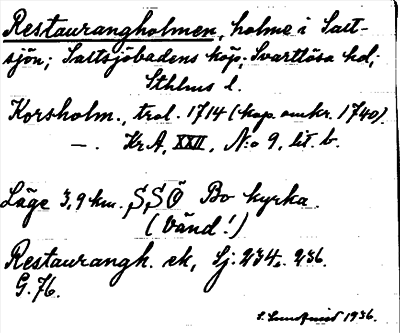 Restaurangholmen, holme i Salt-
sjön; Saltsjöbadens köp; Svartlösa hd;
Sthlms l.
Korsholm., trol. 1714 (kop. omkr. 1740).
—. Kr A, XXII, N:o 9, lit. b.
Läge 3,9 km. SSÖ Bo kyrka.
(Vänd!)
Restaurangh. ek, Sj: 234. 236.
G. 76.
S. Lundqvist 1936.